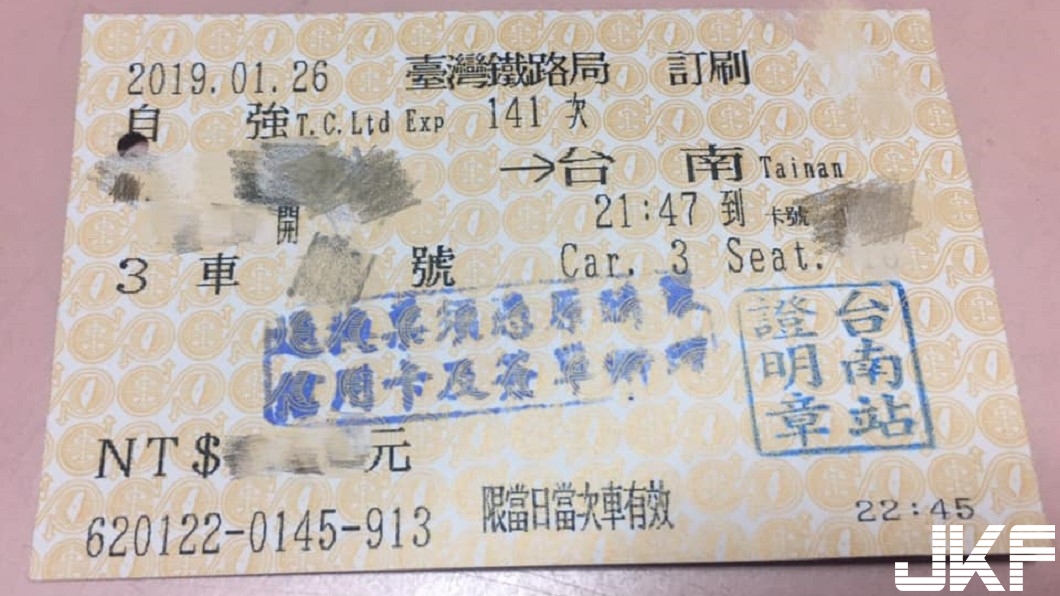 2019.01.26 臺灣鐵路局 訂刷
自強 T.C.Ltd Exp 141 次
→台南 Tainan
開 21:47 到 卡號
3 車 號 Car. 3 Seat.
退換票須憑原購票
信用卡及簽單辦理
台南站
證明章
NT$ 元
620122-0145-913 限當日當次車有效 22:45
JKF